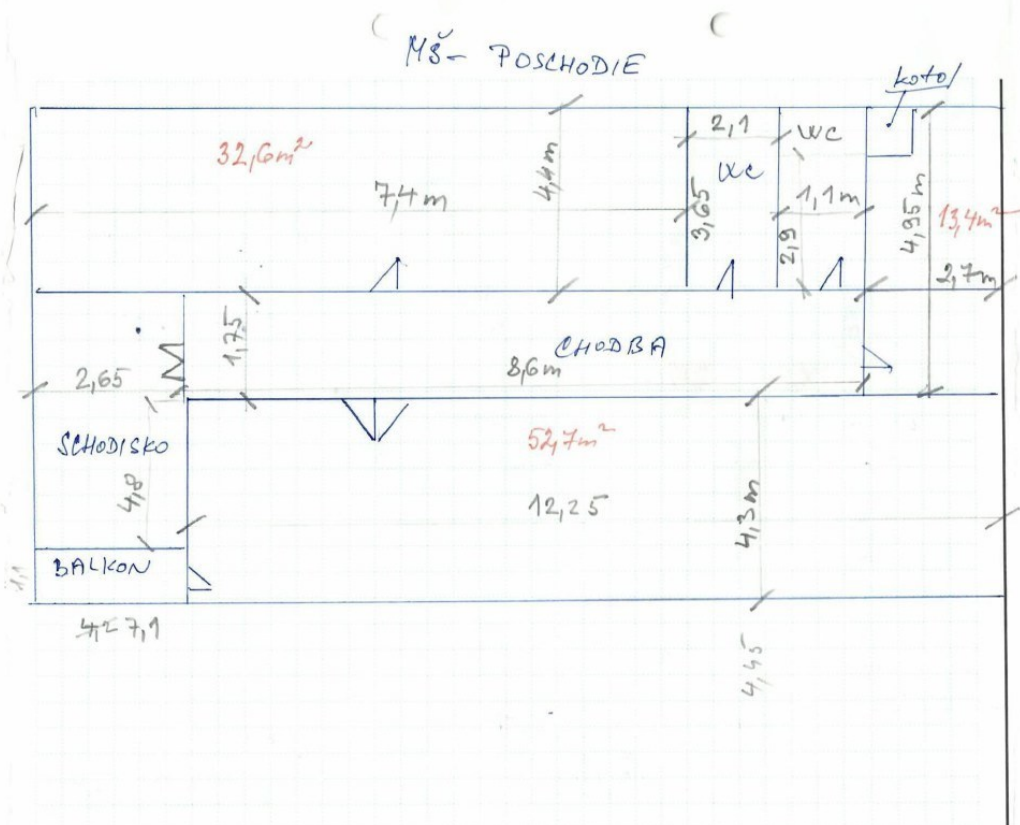 MŠ - POSCHODIE
kotol
32,6m²
7,4m
4,4m
2,1
WC
3,65
WC
1,1m
2,9
4,95m
13,4m²
2,7m
2,65
1,75
CHODBA
8,6m
SCHODISKO
4,8
52,7m²
12,25
4,3m
BALKON
1,1
7,1
4,45